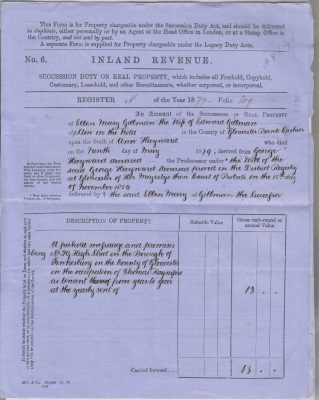 This Form is for Property chargeable under the Succession Duty Act, and should be delivered
in duplicate, either personally or by an Agent at the Head Office in London, or at a Stamp Office in
the Country, and not sent by post.
A separate Form is supplied for Property chargeable under the Legacy Duty Acts.
No. 6. INLAND REVENUE.
SUCCESSION DUTY ON REAL PROPERTY, which includes all Freehold, Copyhold,
Customary, Leasehold, and other Hereditaments, whether corporeal, or incorporeal.
REGISTER of the Year 1879. Folio
An Account of the Succession in Real Property
of Ellen Mary Gillman the Wife of Edward Gillman
of in the County of Gloucester Bank Cashier
upon the death of Ann Hayward who died
on the Tenth day of May 1879, derived from George
Hayward deceased the Predecessor under the Will of the
said George Hayward deceased proved in the District Registry
at Gloucester of Her Majesty's Court of Probate on the
of November
delivered by the said Ellen Mary Gillman the Successor
DESCRIPTION OF PROPERTY
Rateable Value
Gross rack-rental or annual Value
A freehold messuage and premises
No. High Street in the Borough of
Tewkesbury in the County of Gloucester
in the occupation of Thomas
as tenant thereof from year to year
at the yearly rent of 13 . .
Carried forward 13 . .